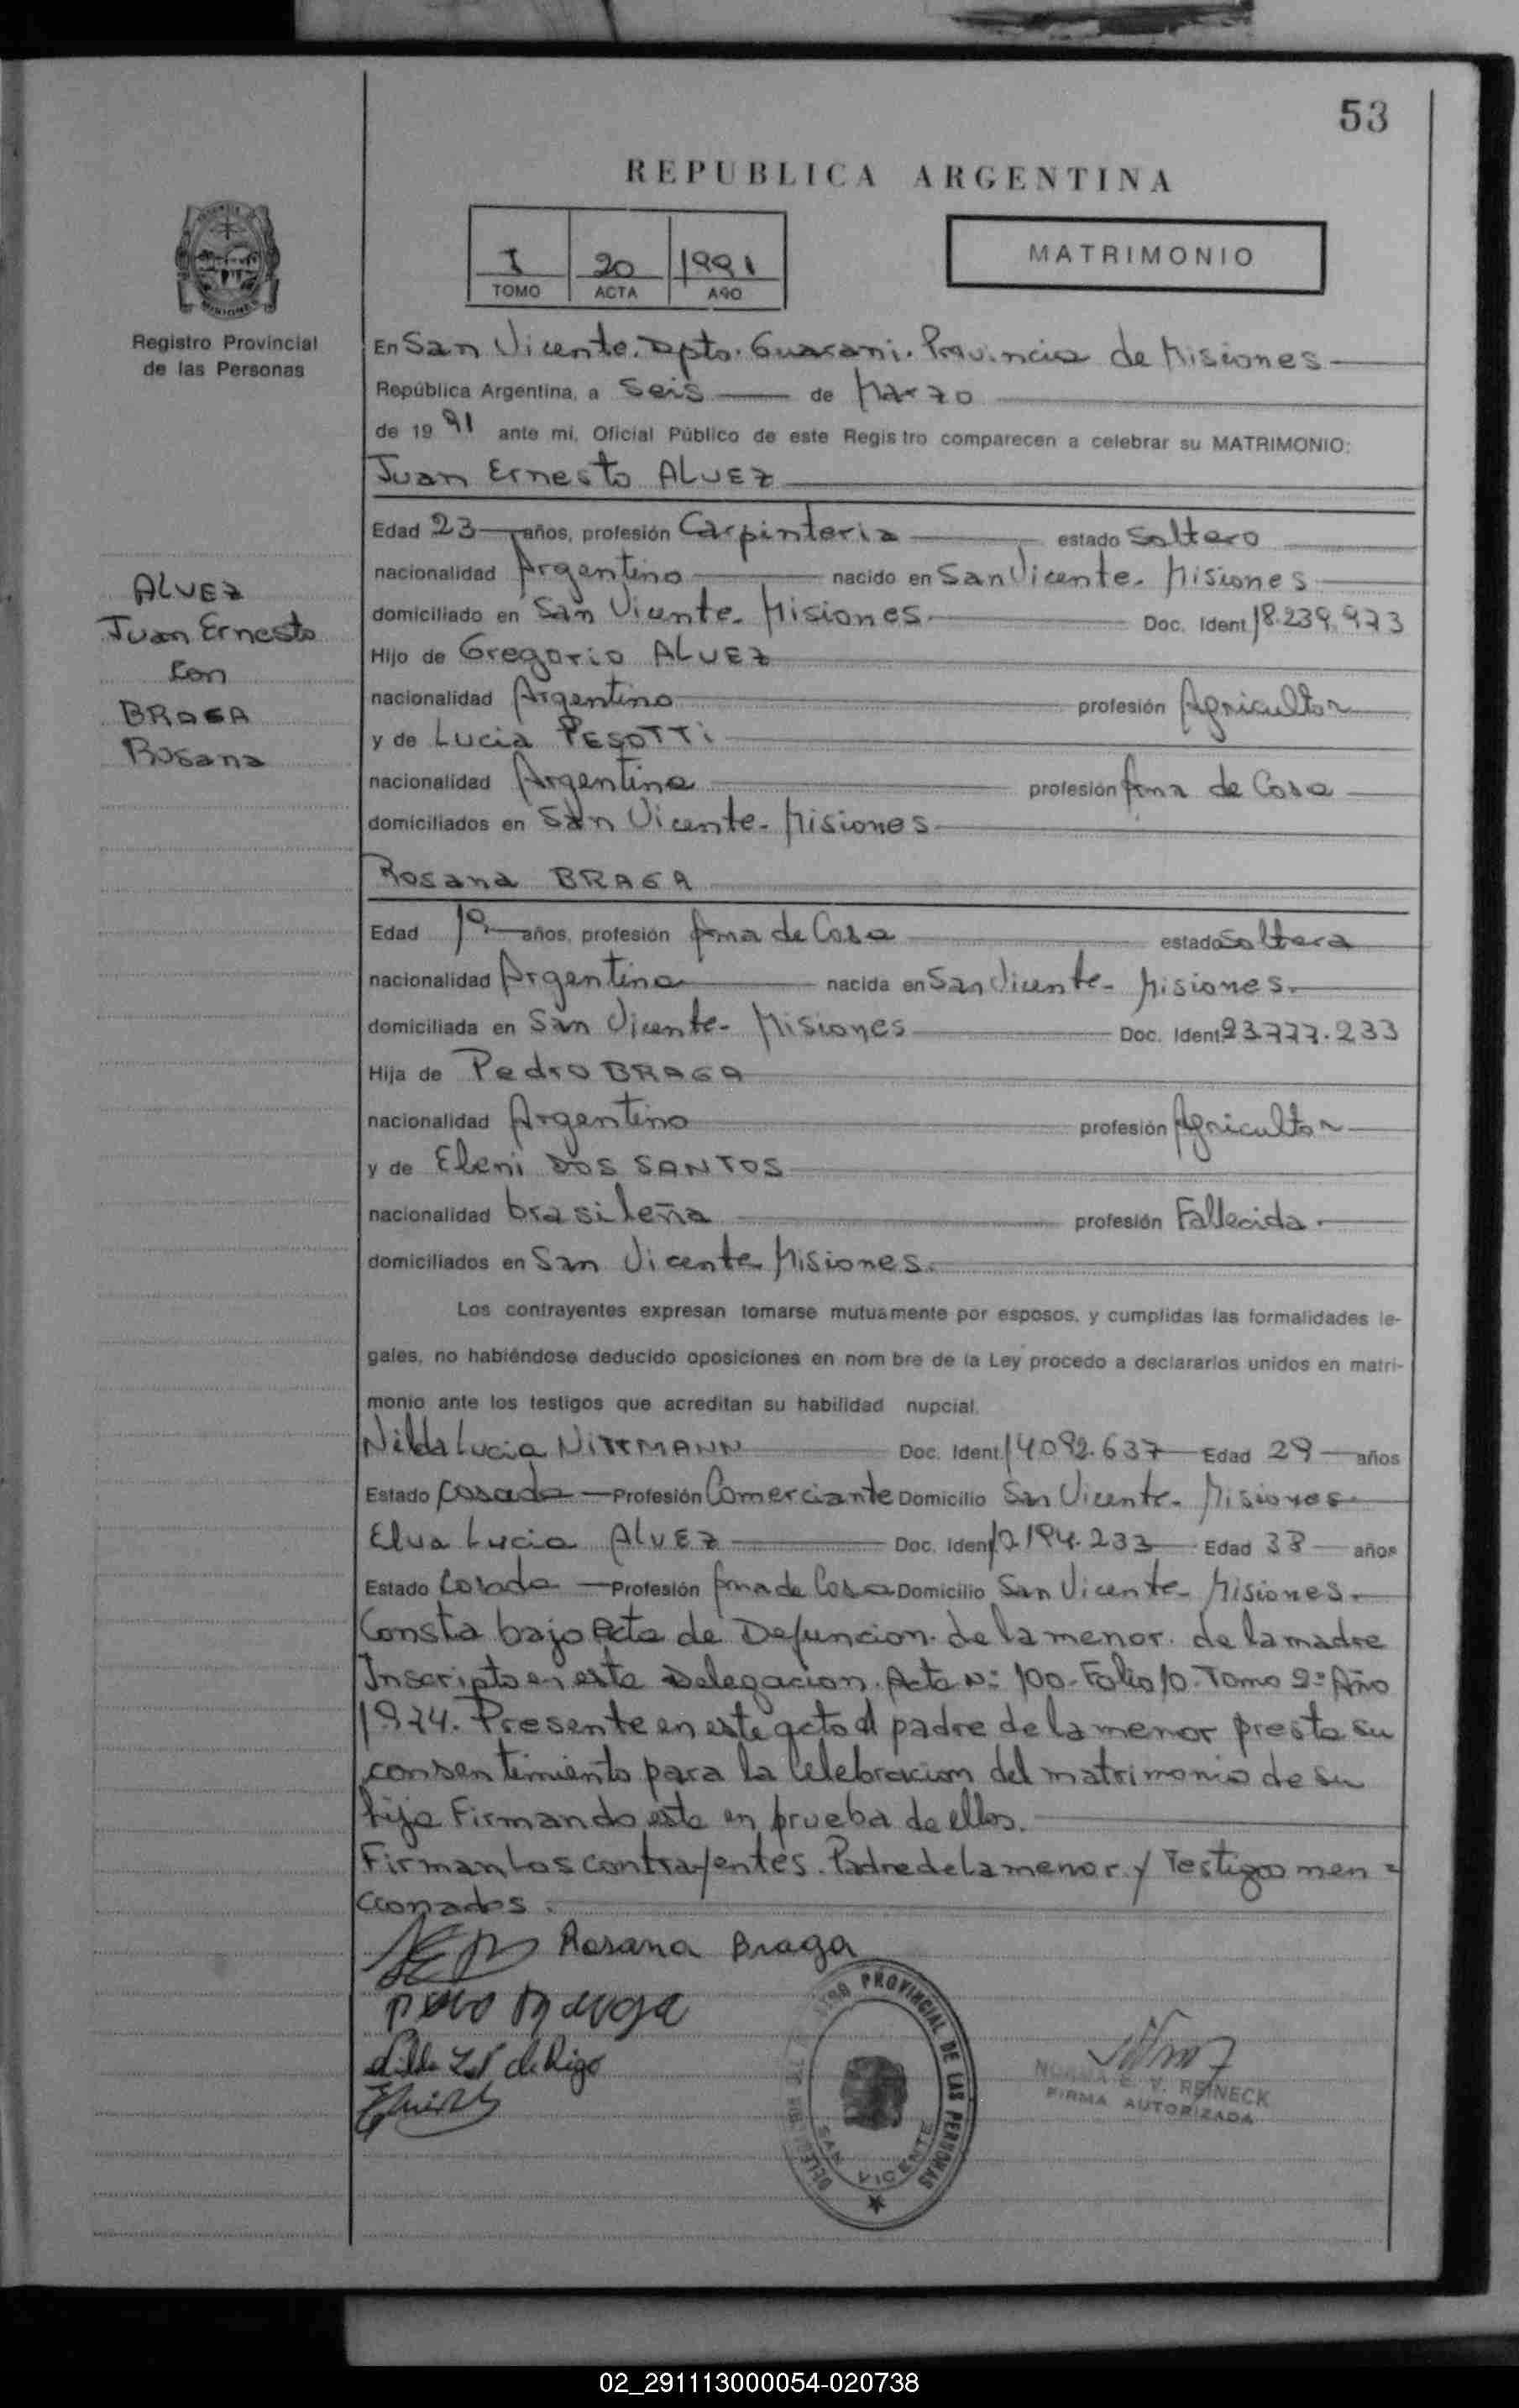 53
REPUBLICA ARGENTINA
I 20 1991
TOMO ACTA AÑO
MATRIMONIO
Registro Provincial
de las Personas
ALVEZ
Juan Ernesto
con
BRAGA
Rosana
En San Vicente. Dpto. Guarani. Provincia de Misiones
República Argentina, a Seis de Marzo
de 19 91 ante mí, Oficial Público de este Registro comparecen a celebrar su MATRIMONIO:
Juan Ernesto ALVEZ
Edad 23 años, profesión Carpinteria estado Soltero
nacionalidad Argentino nacido en San Vicente. Misiones
domiciliado en San Vicente. Misiones Doc. Ident. 18.239.973
Hijo de Gregorio ALVEZ
nacionalidad Argentino profesión Agricultor
y de Lucia PESOTTI
nacionalidad Argentina profesión Ama de Casa
domiciliados en San Vicente - Misiones
Rosana BRAGA
Edad años, profesión Ama de Casa estado Soltera
nacionalidad Argentina nacida en San Vicente - Misiones.
domiciliada en San Vicente - Misiones Doc. Ident. 23.777.233
Hija de Pedro BRAGA
nacionalidad Argentino profesión Agricultor
y de Eleni DOS SANTOS
nacionalidad brasileña profesión Fallecida.
domiciliados en San Vicente Misiones.
Los contrayentes expresan tomarse mutuamente por esposos, y cumplidas las formalidades le-
gales, no habiéndose deducido oposiciones en nom bre de la Ley procedo a declararlos unidos en matri-
monio ante los testigos que acreditan su habilidad nupcial.
Nilda Lucia NITTMANN Doc. Ident. 14.092.637 Edad 29 años
Estado Casada Profesión Comerciante Domicilio San Vicente - Misiones
Elva Lucia ALVEZ Doc. Ident. 12.194.233 Edad 38 años
Estado Casada Profesión Ama de Casa Domicilio San Vicente - Misiones.
Consta bajo Acta de Defuncion. de la menor. de la madre
Inscripto en esta Delegacion. Acta Nº 100 - Folio 10. Tomo 2º Año
1974. Presente en este acto el padre de la menor presta su
consentimiento para la Celebracion del matrimonio de su
hija Firmando esta en prueba de ellos.
Firman los contrayentes. Padre de la menor y Testigos men =
cionados.
Rosana Braga
DELEGACION
REGISTRO PROVINCIAL DE LAS PERSONAS
SAN VICENTE
NORMA E. V. REINECK
FIRMA AUTORIZADA
02_291113000054-020738